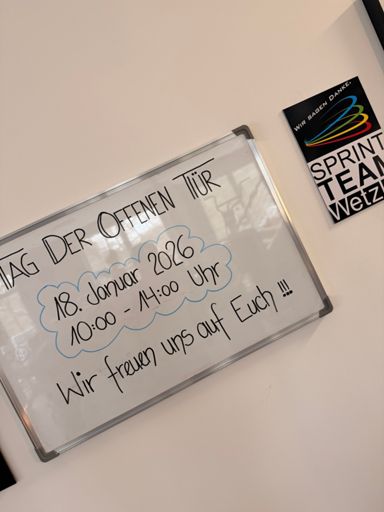 TAG DER OFFENEN TÜR
18. Januar 2026
10:00 - 14:00 Uhr
Wir freuen uns auf Euch !!!
WIR SAGEN DANKE.
SPRINT
TEAM
Wetzl